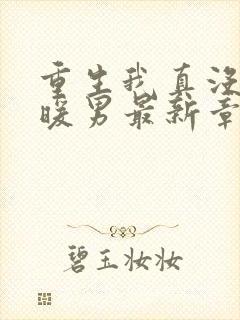 重生我真没
暖男最新章
碧玉妆妆